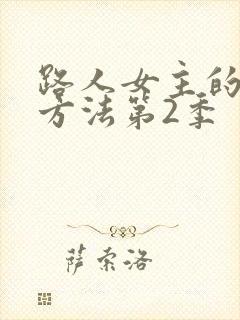 路人女主的
方法第2季
萨索洛